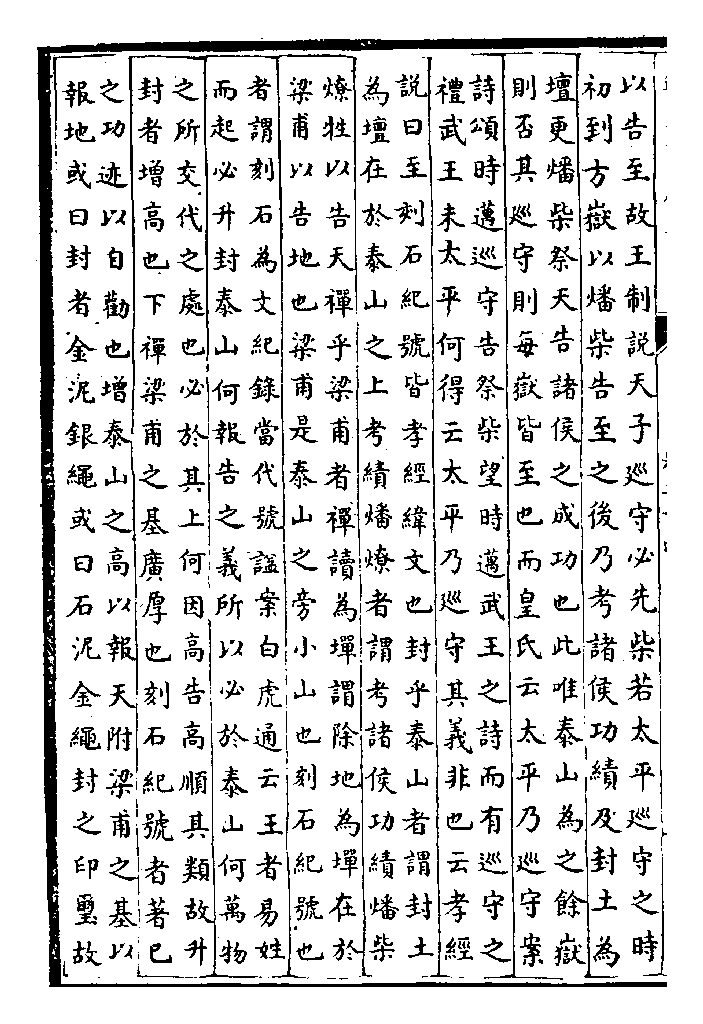 以告至故王制說天子廵守必先柴若太平廵守之時
初到方嶽以燔柴告至之後乃考諸侯功績及封土為
壇更燔柴祭天告諸侯之成功也此唯泰山為之餘嶽
則否其廵守則每嶽皆至也而皇氏云太平乃廵守案
詩頌時邁廵守告祭柴望時邁武王之詩而有廵守之
禮武王未太平何得云太平乃廵守其義非也云孝經
說曰至刻石紀號皆孝經緯文也封乎泰山者謂封土
為壇在於泰山之上考績燔燎者謂考諸侯功績燔柴
燎牲以告天禪乎梁甫者禪讀為墠謂除地為墠在於
梁甫以告地也梁甫是泰山之旁小山也刻石紀號也
者謂刻石為文紀錄當代號諡案白虎通云王者易姓
而起必升封泰山何報告之義所以必於泰山何萬物
之所交代之處也必於其上何因高告高順其類故升
封者增高也下禪梁甫之基廣厚也刻石紀號者著已
之功迹以自勸也增泰山之高以報天附梁甫之基以
報地或曰封者金泥銀繩或曰石泥金繩封之印璽故